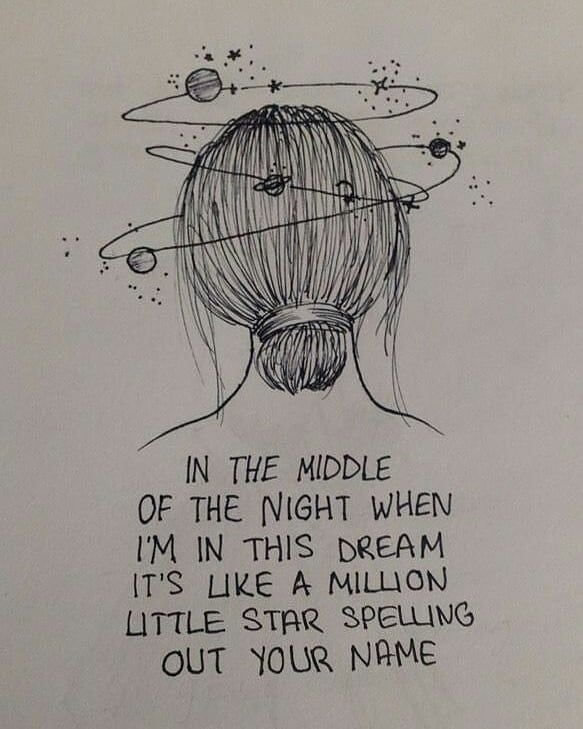 IN THE MIDDLE
OF THE NIGHT WHEN
I'M IN THIS DREAM
IT'S LIKE A MILLION
LITTLE STAR SPELLING
OUT YOUR NAME